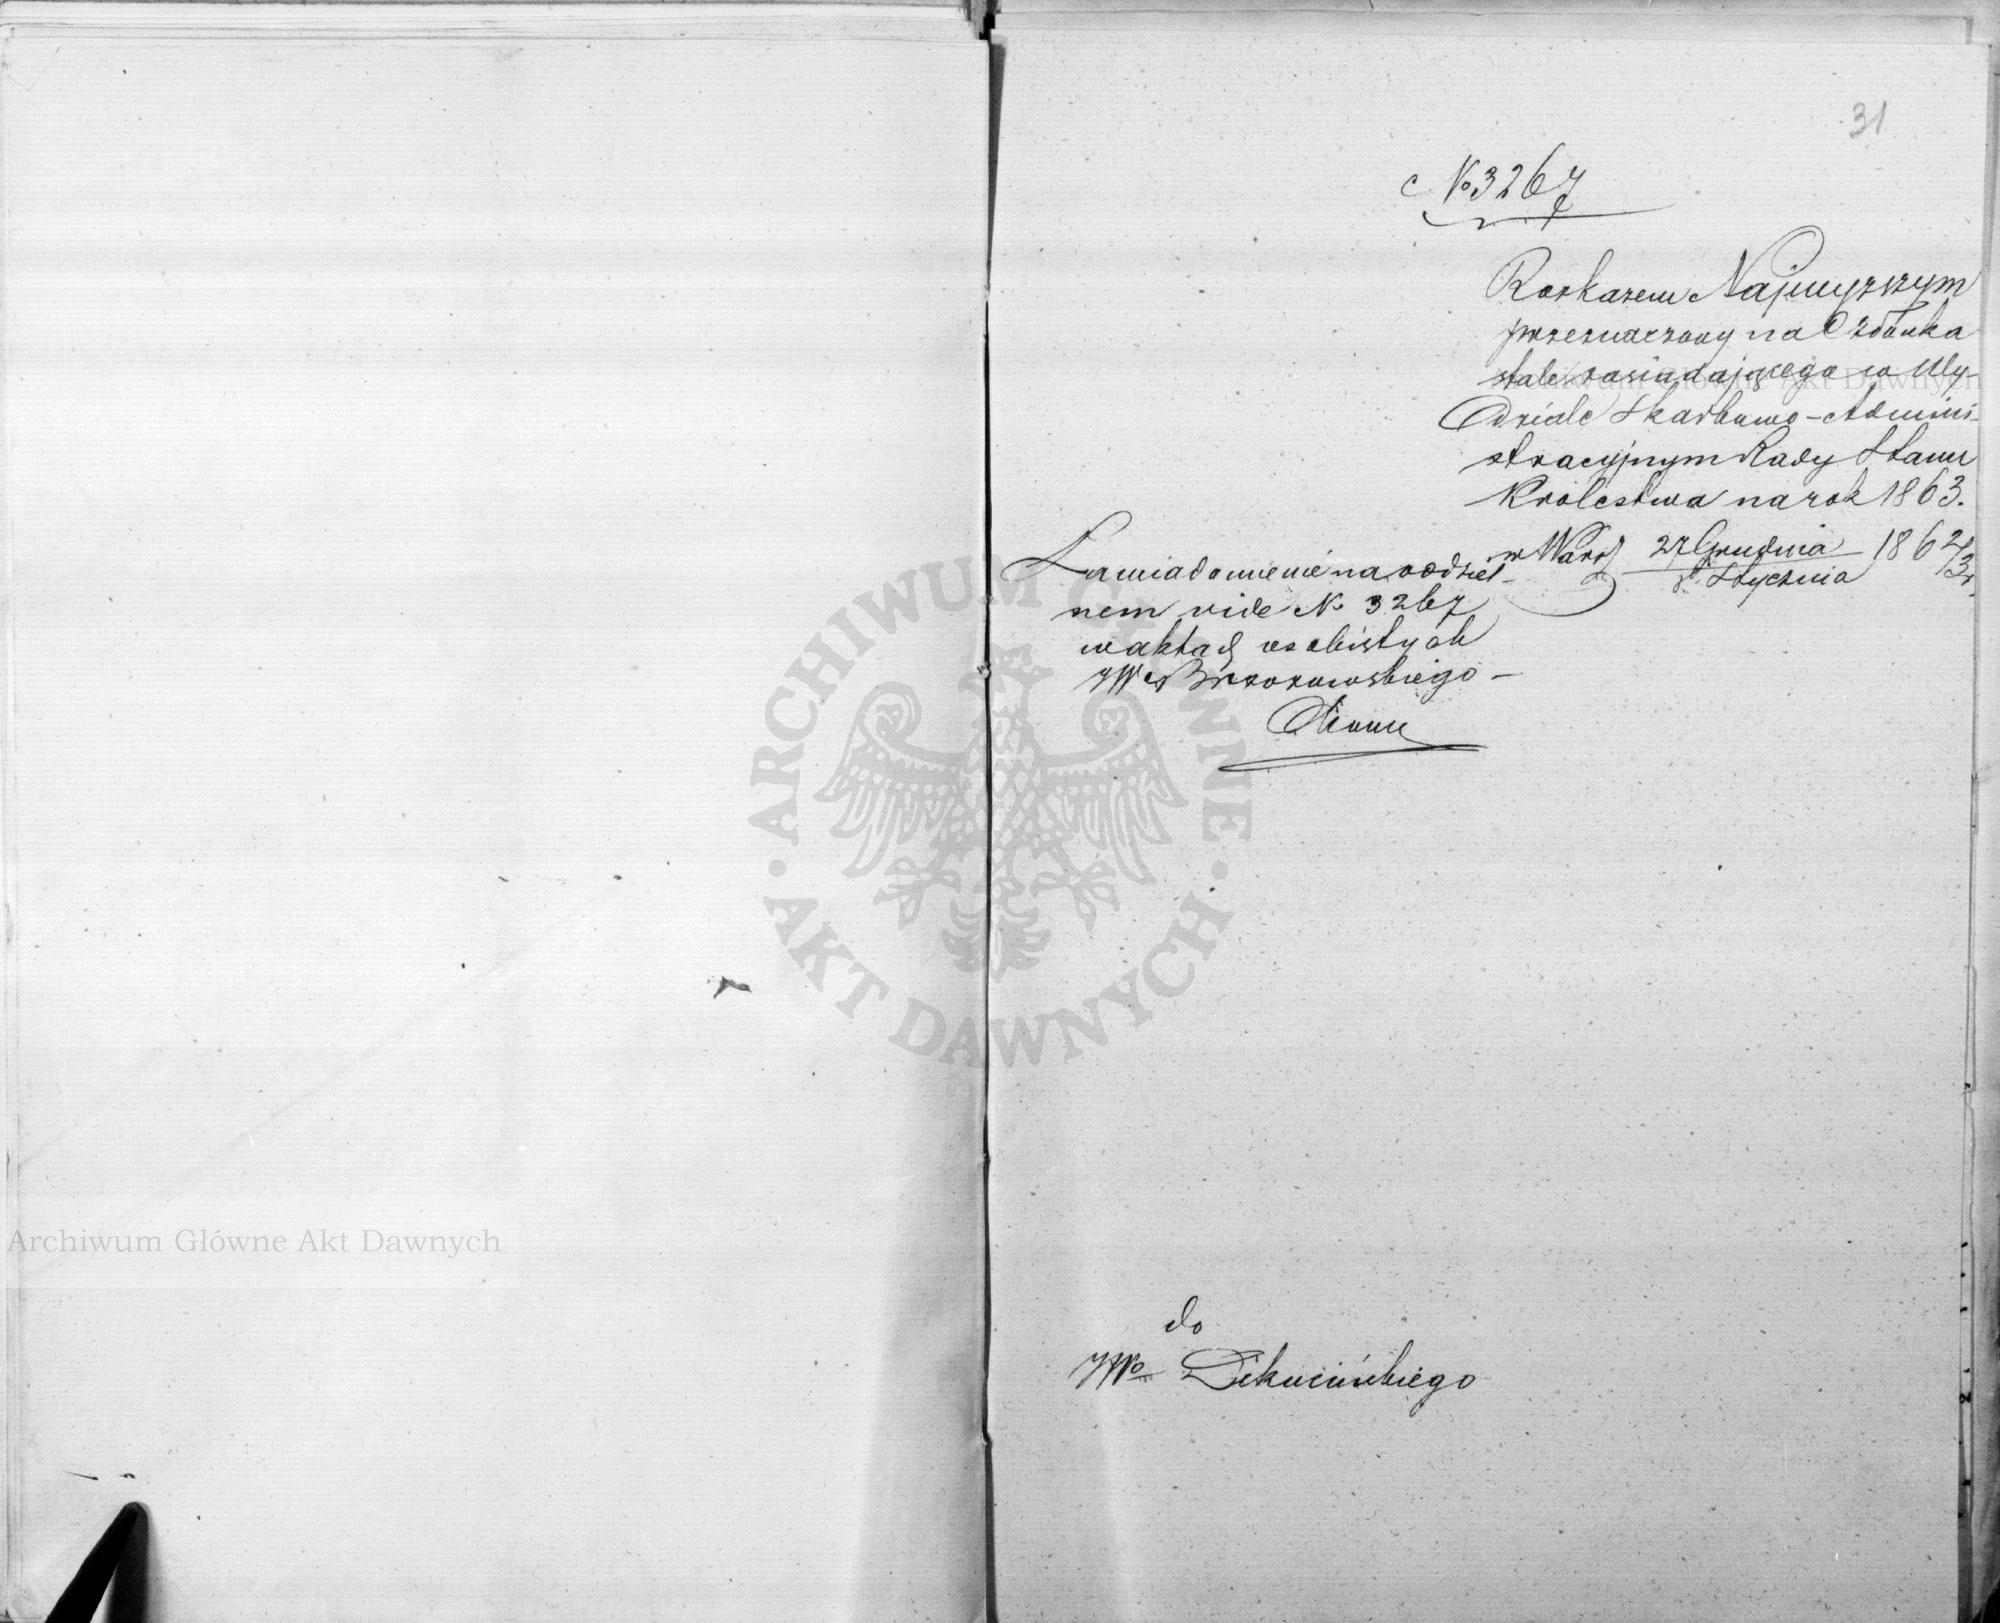 31
№ 3267
Rozkazem Najwyższym
przeznaczony na Członka
stale zasiadającego w Wy-
dziale Skarbowo-Admini-
stracyjnym Rady Stanu
Królestwa na rok 1863.
w Warsz 27 Grudnia 1862/3 r.
Stycznia
Zawiadomienie na oddziel-
nem vide № 3267
w aktach osobistych
JW Brzozowskiego –
do
JWo Dekucińskiego
ARCHIWUM GŁÓWNE AKT DAWNYCH
Archiwum Główne Akt Dawnych
Archiwum Główne Akt Dawnych